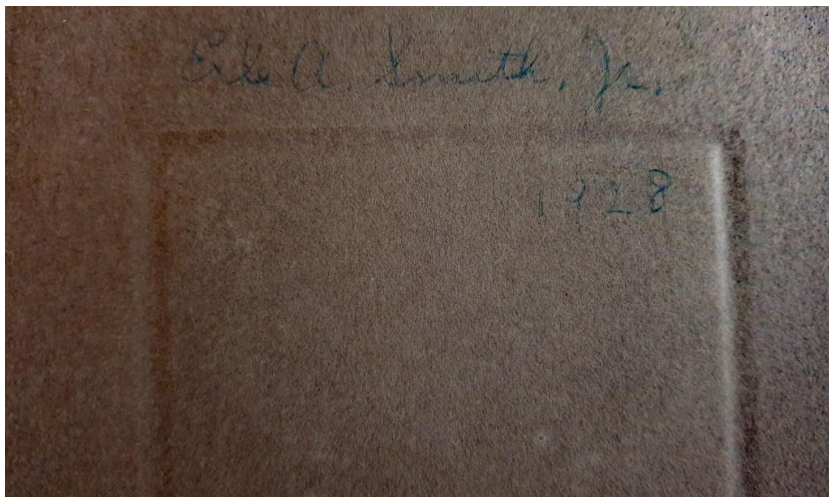 Erle A. Smith, Jr.
1928